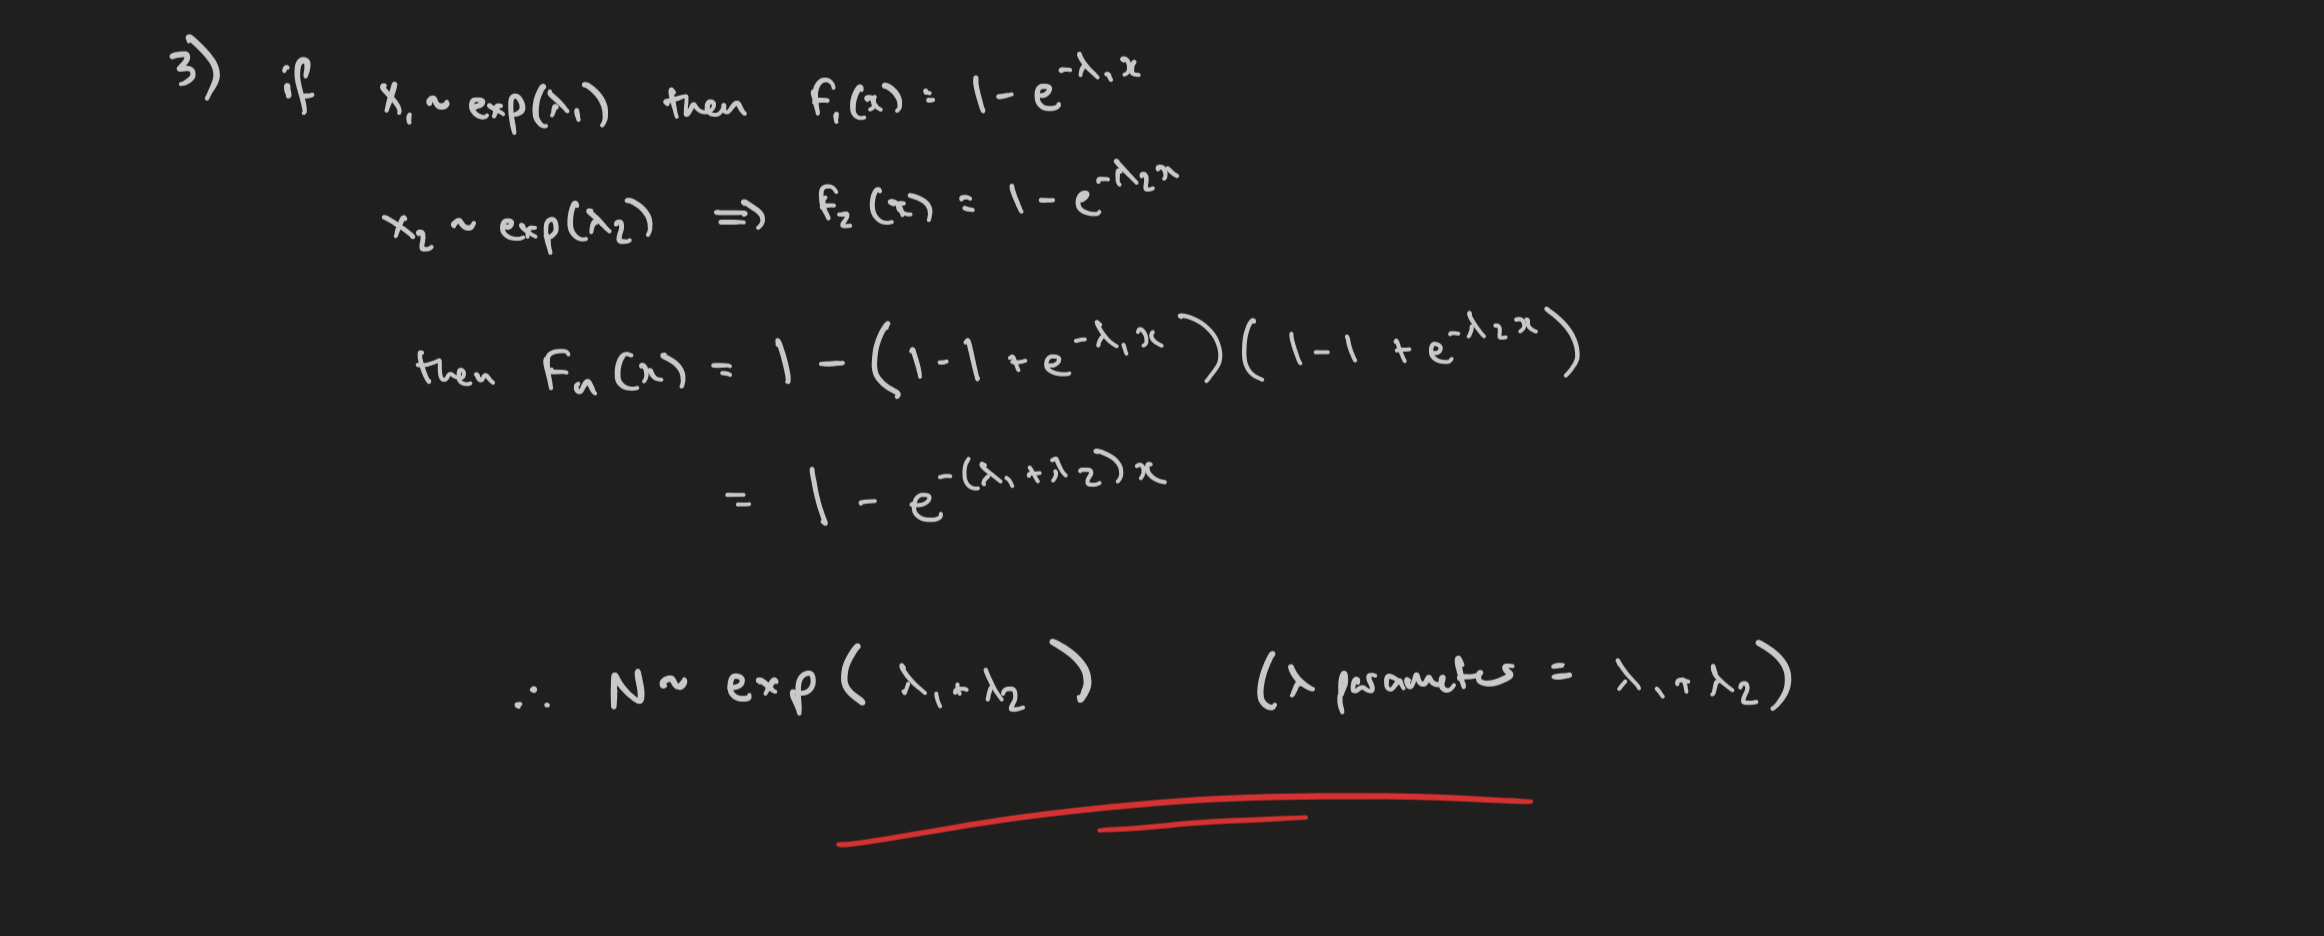 3) if X₁ ~ exp(λ₁) then F₁(x) = 1 - e^{-λ₁x}
X₂ ~ exp(λ₂) ⇒ F₂(x) = 1 - e^{-λ₂x}
then Fₙ(x) = 1 - (1-1+e^{-λ₁x})(1-1+e^{-λ₂x})
= 1 - e^{-(λ₁+λ₂)x}
∴ N ~ exp(λ₁+λ₂) (λ parameter = λ₁+λ₂)